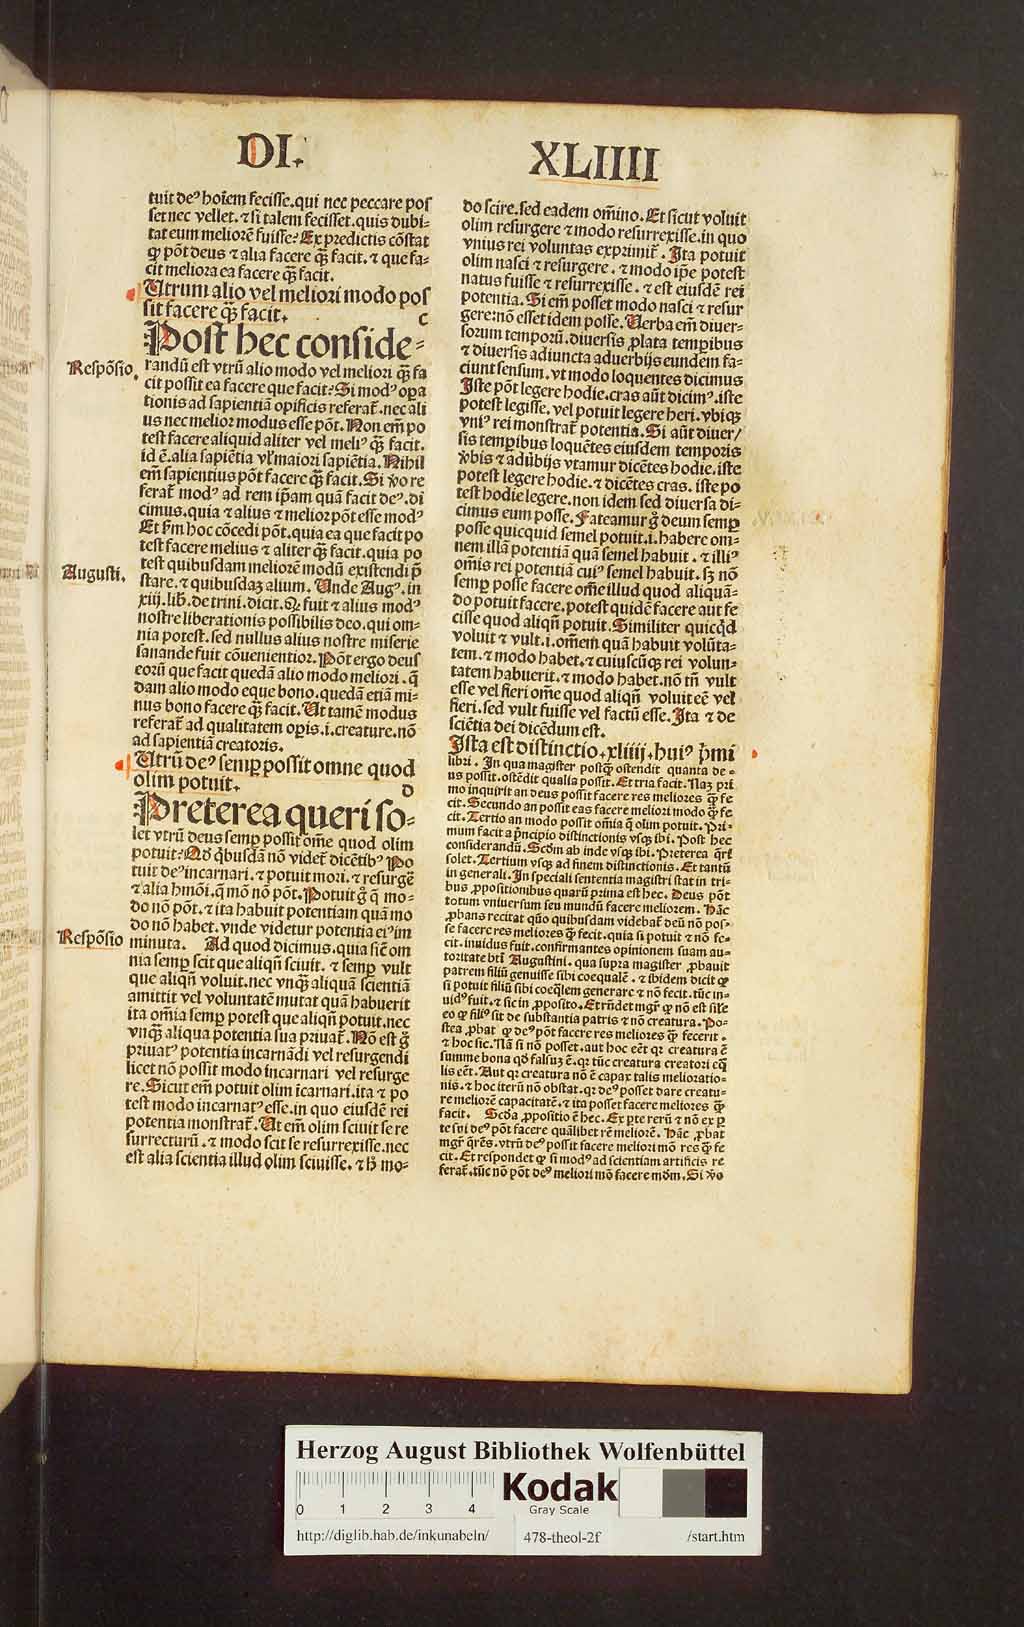 DI.
XLIIII
tuit deꝰ hoīem fecisse.qui nec peccare pos
set nec vellet.⁊ si talem fecisset.quis dubi⸗
tat eum meliorē fuisse? Ex predictis cōstat
ꝙ pōt deus ⁊ alia facere q̄ꝫ facit.⁊ que fa⸗
cit meliora ea facere q̄ꝫ facit.
Utrum alio vel meliori modo pos
sit facere q̄ꝫ facit.
C
Post hec conside⸗
Respōsio.
randū est vtrū alio modo vel meliori q̄ꝫ fa
cit possit ea facere que facit? Si modꝰ oꝑa
tionis ad sapientiā opificis referat̄.nec ali
us nec melior modus esse pōt. Non em̄ po
test facere aliquid aliter vel meliꝰ q̄ꝫ facit.
id ē.alia sapiētia vl̓ maiori sapiētia. Nihil
em̄ sapientius pōt facere q̄ꝫ facit. Si v̓o re
ferat̄ modꝰ ad rem ip̄am quā facit deꝰ.di
cimus.quia ⁊ alius ⁊ melior pōt esse modꝰ
Et s̓m hoc cōcedi pōt.quia ea que facit po
test facere melius ⁊ aliter q̄ꝫ facit.quia po
Augusti.
test quibusdam meliorē modū existendi p̄
stare.⁊ quibusdaꝫ alium. Unde Augꝰ.in
xiij.lib̓.de trini.dicit. Ꝙ fuit ⁊ alius modꝰ
nostre liberationis possibilis deo.qui om⸗
nia potest.sed nullus alius nostre miserie
sanande fuit cōuenientior. Pōt ergo deus
eorū que facit quedā alio modo meliori.q̄
dam alio modo eque bono.quedā etiā mi⸗
nus bono facere q̄ꝫ facit. Ut tamē modus
referat̄ ad qualitatem oꝑis.i.creature.nō
ad sapientiā creatoris.
Utrū deꝰ semꝑ possit omne quod
olim potuit.
D
Preterea queri so⸗
let vtrū deus semꝑ possit om̄e quod olim
potuit? Qd̓ q̓busdā nō videt̄ dicētibꝰ Po
tuit deꝰ incarnari.⁊ potuit mori.⁊ resurgē
⁊ alia hmōi.q̄ mō nō pōt. Potuit g̊ q̄ mo⸗
do nō pōt.⁊ ita habuit potentiam quā mo
do nō habet.vnde videtur potentia eiꝰ im
Respōsio
minuta. Ad quod dicimus.quia sic̄ om
nia semꝑ scit que aliqn̄ sciuit.⁊ semꝑ vult
que aliqn̄ voluit.nec vnq̄ꝫ aliquā scientiā
amittit vel voluntatē mutat quā habuerit
ita om̄ia semꝑ potest que aliqn̄ potuit.nec
vnq̄ꝫ aliqua potentia sua priuat̄. Nō est g̊
priuatꝰ potentia incarnādi vel resurgendi
licet nō possit modo incarnari vel resurge
re. Sicut em̄ potuit olim īcarnari.ita ⁊ po
test modo incarnatꝰ esse.in quo eiusdē rei
potentia monstrat̄. Ut em̄ olim sciuit se re
surrecturū.⁊ modo scit se resurrexisse.nec
est alia scientia illud olim sciuisse.⁊ h̓ mo⸗
do scire.sed eadem om̄ino. Et sicut voluit
olim resurgere ⁊ modo resurrexisse.in quo
vnius rei voluntas exprimit̄. Ita potuit
olim nasci ⁊ resurgere.⁊ modo ip̄e potest
natus fuisse ⁊ resurrexisse.⁊ est eiusdē rei
potentia. Si em̄ posset modo nasci ⁊ resur
gere:nō esset idem posse. Verba em̄ diuer⸗
sorum temporū.diuersis ꝓlata tempibus
⁊ diuersis adiuncta aduerbijs eundem fa⸗
ciunt sensum.vt modo loquentes dicimus
Iste pōt legere hodie.cras aūt dicimꝰ.iste
potest legisse.vel potuit legere heri.vbiqꝫ
vniꝰ rei monstrat̄ potentia. Si aūt diuer/
sis tempibus loquētes eiusdem temporis
v̓bis ⁊ adu̓bijs vtamur dicētes hodie.iste
potest legere hodie.⁊ dicētes cras.iste po
test hodie legere.non idem sed diuersa di⸗
cimus eum posse. Fateamur g̊ deum semꝑ
posse quicquid semel potuit.i.habere om⸗
nem illā potentiā quā semel habuit.⁊ illiꝰ
om̄is rei potentiā cuiꝰ semel habuit.sꝫ nō
semꝑ posse facere om̄e illud quod aliquā⸗
do potuit facere.potest quidē facere aut fe
cisse quod aliqn̄ potuit. Similiter quicq̓d
voluit ⁊ vult.i.om̄em quā habuit volūta⸗
tem.⁊ modo habet.⁊ cuiuscūqꝫ rei volun⸗
tatem habuerit.⁊ modo habet.nō tn̄ vult
esse vel fieri om̄e quod aliqn̄ voluit eē vel
fieri.sed vult fuisse vel factū esse. Ita ⁊ de
sciētia dei dicēdum est.
Ista est distinctio.xliiij.huiꝰ p̓mi
libri. In qua magister postq̄ꝫ ostendit quanta de⸗
us possit.ostēdit qualia possit. Et tria facit. Naꝫ pri
mo inquirit an deus possit facere res meliores q̄ꝫ fe
cit. Secundo an possit eas facere meliori modo q̄ꝫ fe
cit. Tertio an modo possit om̄ia q̄ olim potuit. Pri⸗
mum facit a p̓ncipio distinctionis vsqꝫ ibi. Post hec
considerandū. Scd̓m ab inde vsqꝫ ibi. Preterea q̄ri
solet. Tertium vsqꝫ ad finem distinctionis. Et tantū
in generali. In speciali sententia magistri stat in tri⸗
bus ꝓpositionibus quarū prima est hec. Deus pōt
totum vniuersum seu mundū facere meliorem. Hāc
ꝓbans recitat qūo quibusdam videbat̄ deū nō pos⸗
se facere res meliores q̄ꝫ fecit.quia si potuit ⁊ nō fe⸗
cit.inuidus fuit.confirmantes opinionem suam au⸗
toritate bt̄i Augustini.qua supra magister ꝓbauit
patrem filiū genuisse sibi coequalē.⁊ ibidem dicit ꝙ
si potuit filiū sibi coeq̓lem generare ⁊ nō fecit.tūc in⸗
uidꝰ fuit.⁊ sic in ꝓposito. Et rn̄det mgr̄ ꝙ nō est sil̓e
eo ꝙ filiꝰ sit de substantia patris ⁊ nō creatura. Po⸗
stea ꝓbat ꝙ deꝰ pōt facere res meliores q̄ꝫ fecerit.
⁊ hoc sic. Nā si nō posset.aut hoc eēt qꝛ creatura ē
summe bona qd̓ falsuꝫ ē.qꝛ tūc creatura creatori eq̄
lis eēt. Aut qꝛ creatura nō ē capax talis melioratio⸗
nis.⁊ hoc iterū nō obstat.qꝛ deꝰ posset dare creatu⸗
re meliorē capacitatē.⁊ ita posset facere meliores q̄ꝫ
facit. Scd̓a ꝓpositio ē hec. Ex ꝑte rerū ⁊ nō ex ꝑ
te sui deꝰ pōt facere quālibet rē meliorē. Hāc ꝓbat
mgr̄ q̄rēs.vtrū deꝰ possit facere meliori mō res q̄ꝫ fe
cit. Et respondet ꝙ si modꝰ ad scientiam artificis re
ferat̄.tūc nō pōt deꝰ meliori mō facere mūdm. Si v̓o
Herzog August Bibliothek Wolfenbüttel
0 1 2 3 4
Kodak
Gray Scale
http://diglib.hab.de/inkunabeln/ 478-theol-2f /start.htm